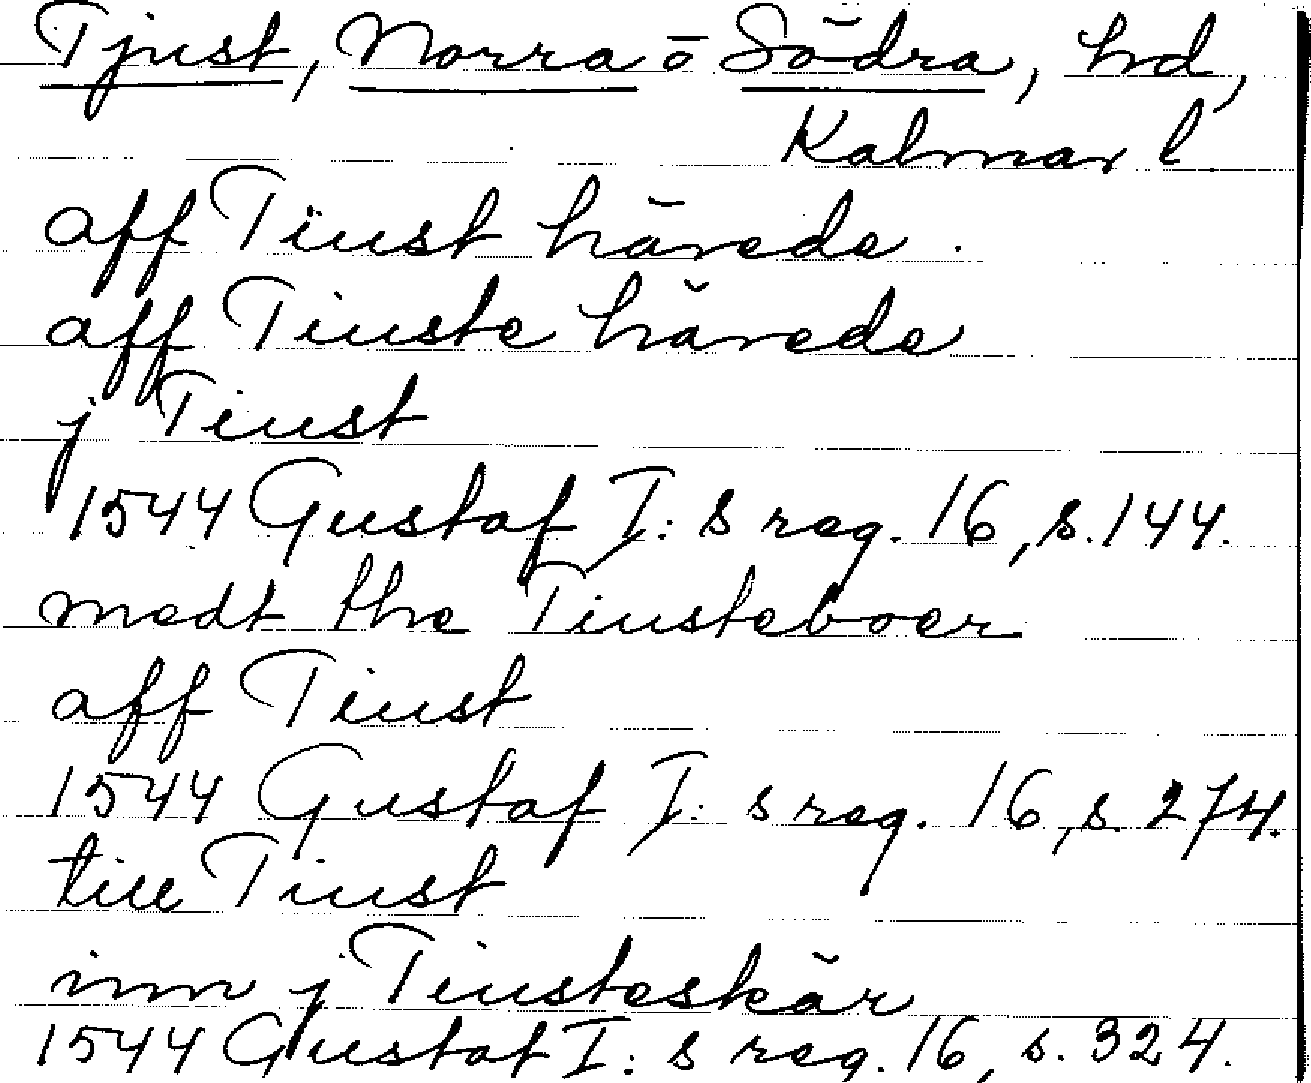 Tjust, Norra o Södra, hd,
Kalmar l
aff Tiust härede.
aff Tiuste härede
j Tiust
1544 Gustaf I: s reg. 16, s. 144.
medt the Tiusteboer
aff Tiust
1544 Gustaf I: s reg. 16, s. 274.
till Tiust
inn j Tiusteskär
1544 Gustaf I: s reg. 16, s. 324.